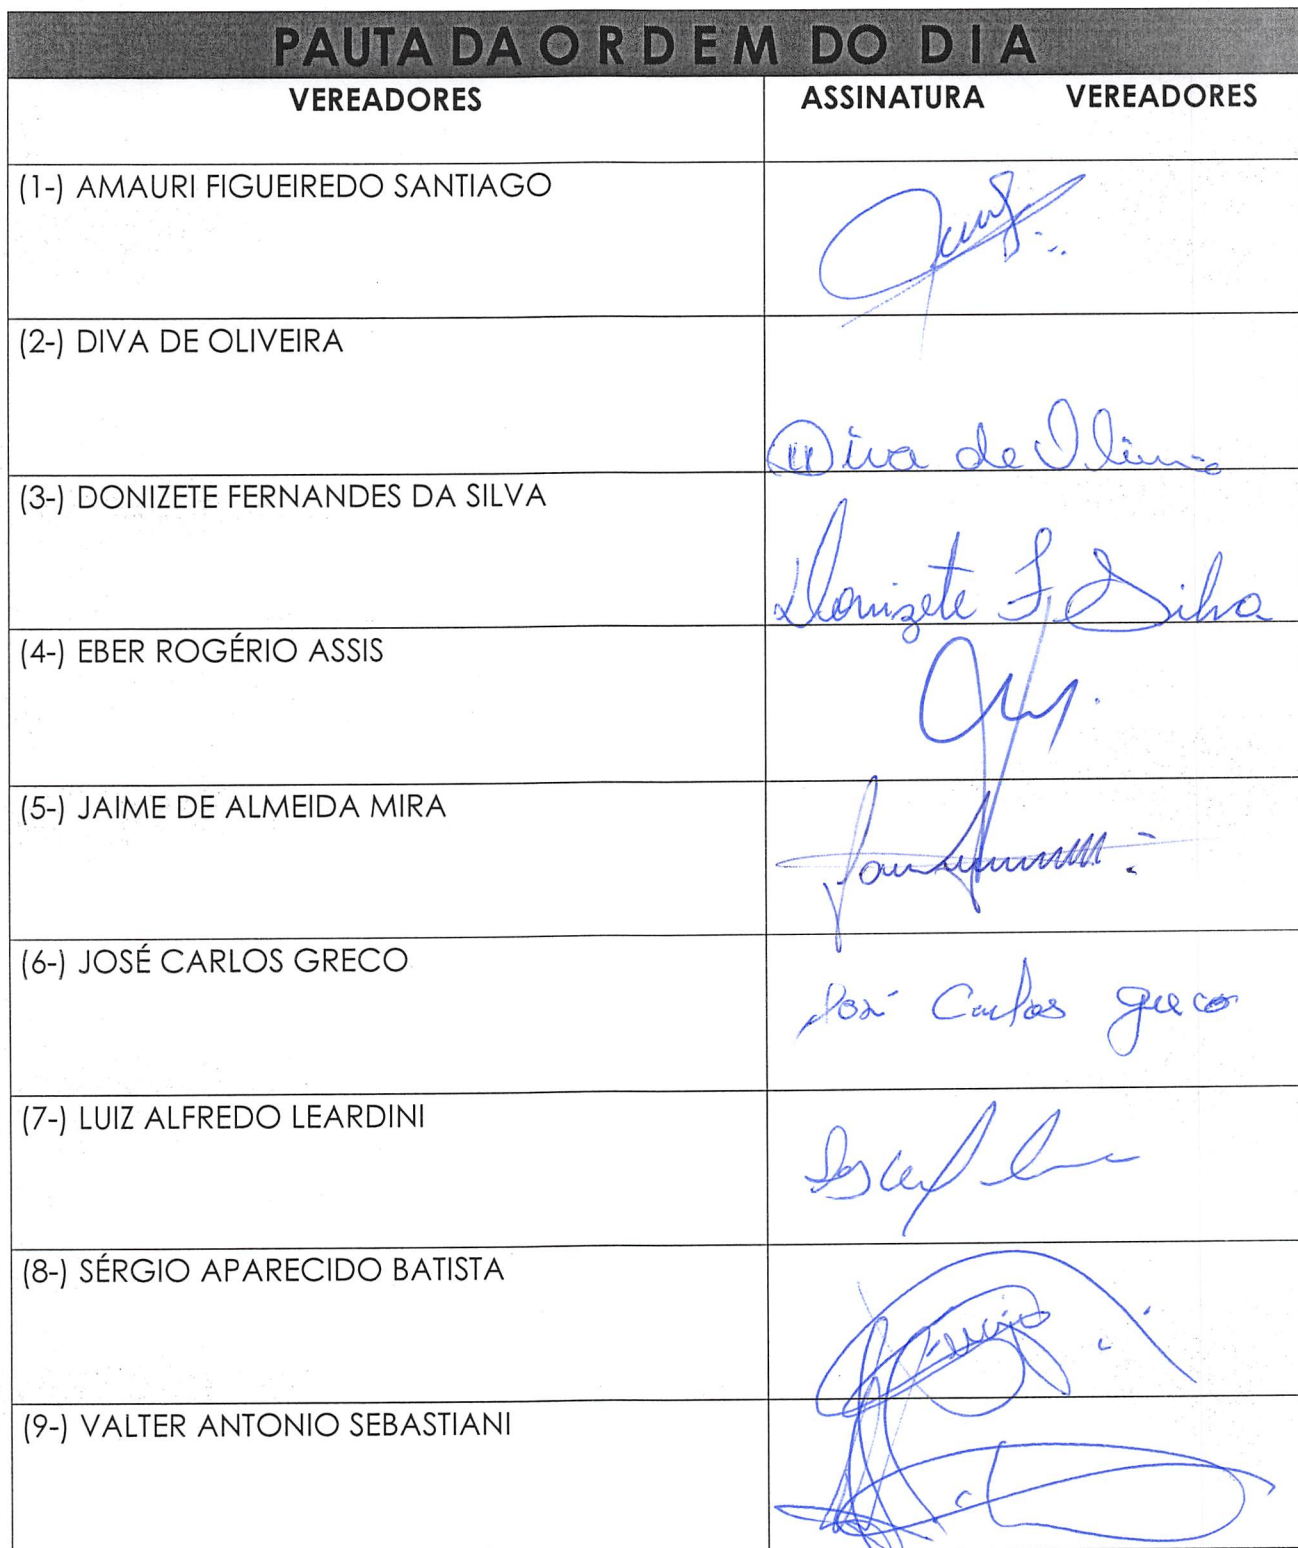 PAUTA DA O R D E M DO D I A
VEREADORES
ASSINATURA VEREADORES
(1-) AMAURI FIGUEIREDO SANTIAGO
(2-) DIVA DE OLIVEIRA
Diva de Oliveira
(3-) DONIZETE FERNANDES DA SILVA
Donizete F. Silva
(4-) EBER ROGÉRIO ASSIS
(5-) JAIME DE ALMEIDA MIRA
(6-) JOSÉ CARLOS GRECO
José Carlos Greco
(7-) LUIZ ALFREDO LEARDINI
(8-) SÉRGIO APARECIDO BATISTA
(9-) VALTER ANTONIO SEBASTIANI